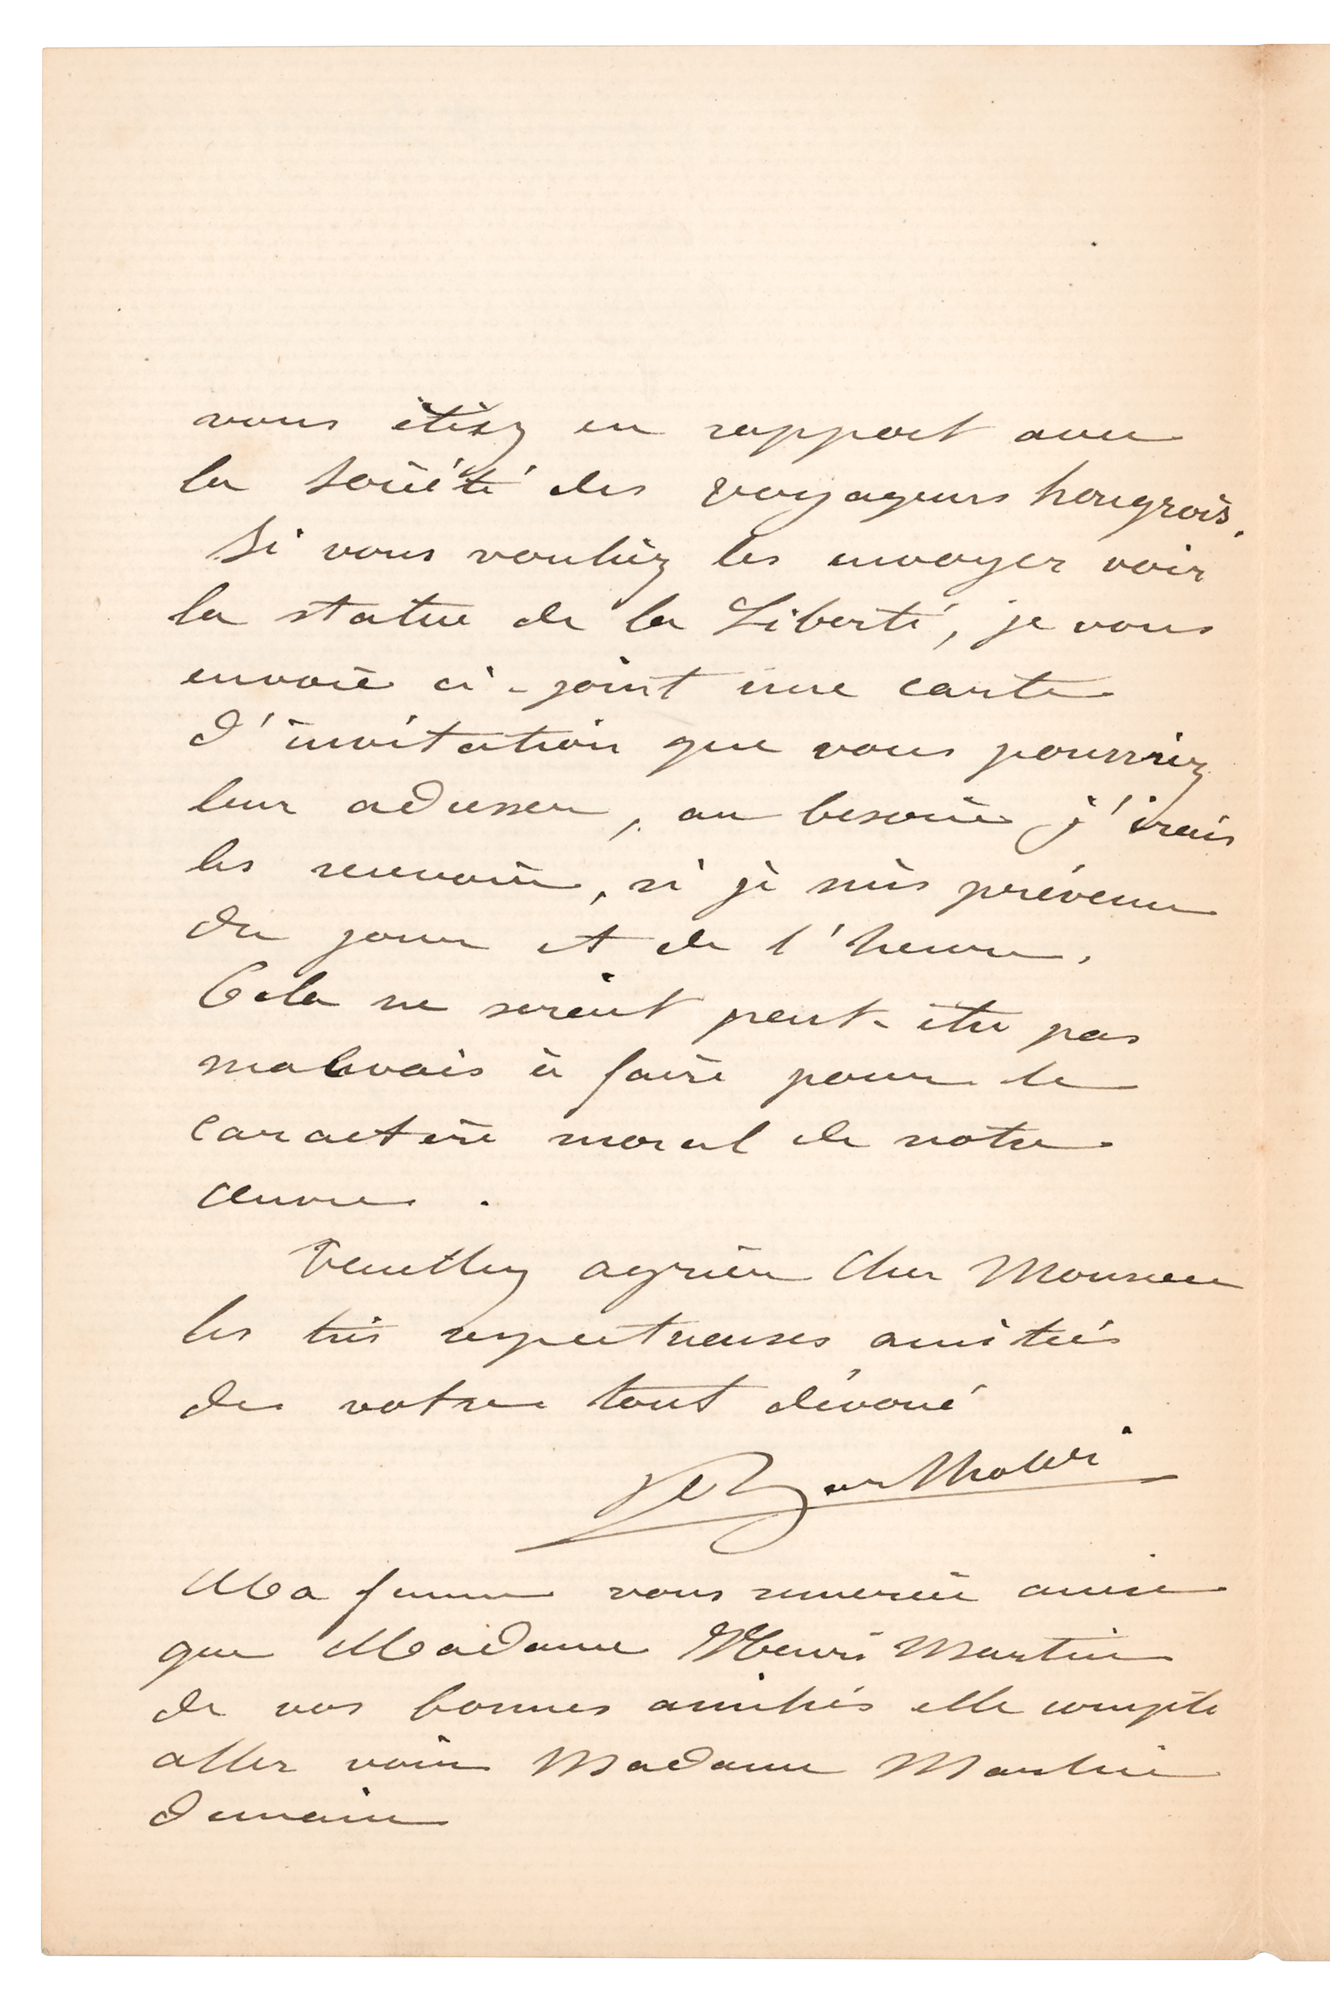 vous étiez en rapport avec
la Société des voyageurs hongrois.
Si vous vouliez les envoyer voir
la statue de la Liberté, je vous
envoie ci-joint une carte
d'invitation que vous pourriez
leur adresser, au besoin j'irais
les recevoir, si je suis prévenu
du jour et de l'heure.
Cela ne serait peut-être pas
mauvais à faire pour le
caractère moral de notre
œuvre.
Veuillez agréer Cher Monsieur
les très respectueuses amitiés
de votre tout dévoué
Bartholdi
Ma femme vous remercie ainsi
que Madame Henri Martin
de vos bonnes amitiés elle compte
aller voir Madame Martin
demain